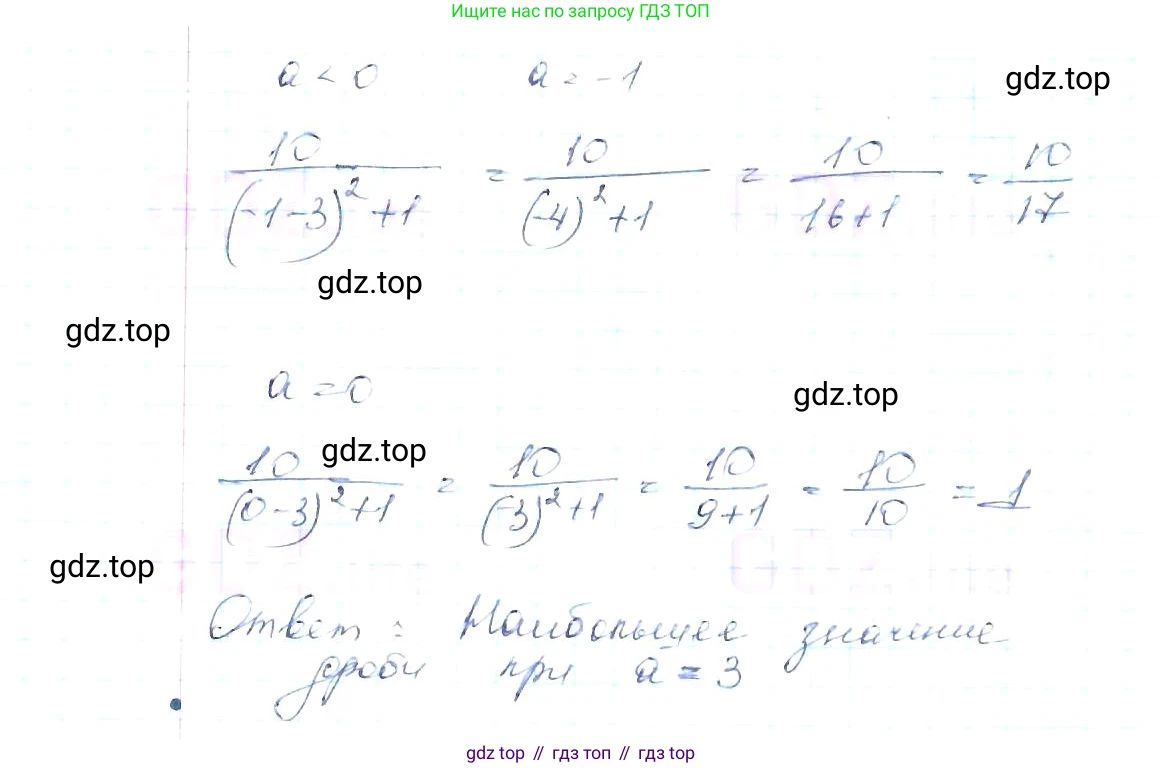 Ищите нас по запросу ГДЗ ТОП
a < 0 a = -1
gdz.top
10/((-1-3)²+1) = 10/((-4)²+1) = 10/(16+1) = 10/17
gdz.top
gdz.top
a = 0
gdz.top
gdz.top
10/((0-3)²+1) = 10/((-3)²+1) = 10/(9+1) = 10/10 = 1
gdz.top
Ответ: Наибольшее значение
дроби при a = 3
gdz top // гдз топ // гдз top